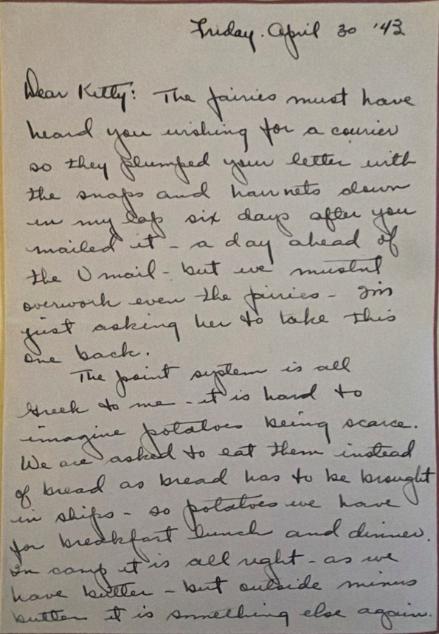 Friday. April 30 '43
Dear Kitty: The fairies must have
heard you wishing for a courier
so they plumped your letter with
the snaps and hairnets down
in my lap six days after you
mailed it - a day ahead of
the V mail - but we mustnt
overwork even the fairies - Im
just asking her to take this
one back.
The point system is all
Greek to me - it is hard to
imagine potatoes being scarce.
We are asked to eat them instead
of bread as bread has to be brought
in ships - so potatoes we have
for breakfast lunch and dinner.
In camp it is all right - as we
have butter - but outside minus
butter it is something else again.